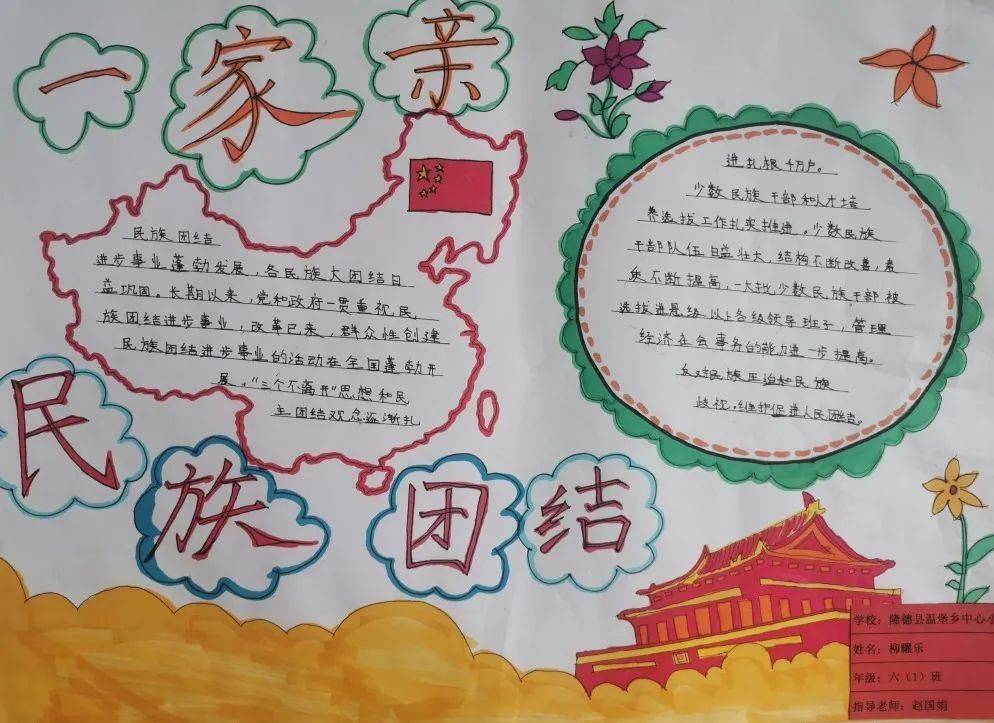 一家亲
民族团结
民族团结
进步事业蓬勃发展，各民族大团结日
益巩固。长期以来，党和政府一贯重视民
族团结进步事业，改革已来，群众性创建
民族团结进步事业的活动在全国蓬勃开
展。“三个不离开”思想和民
主团结观念逐渐扎
进扎根千万户。
少数民族干部和人才培
养选拔工作扎实推进。少数民族
干部队伍日益壮大，结构不断改善，素
质不断提高，一大批少数民族干部被
选拔进县级以上各级领导班子，管理
经济社会事务的能力进一步提高。
反对民族压迫和民族
歧视，维护促进人民团结。
学校：隆德县温堡乡中心小
姓名：柳耀乐
年级：六（1）班
指导老师：赵国娟